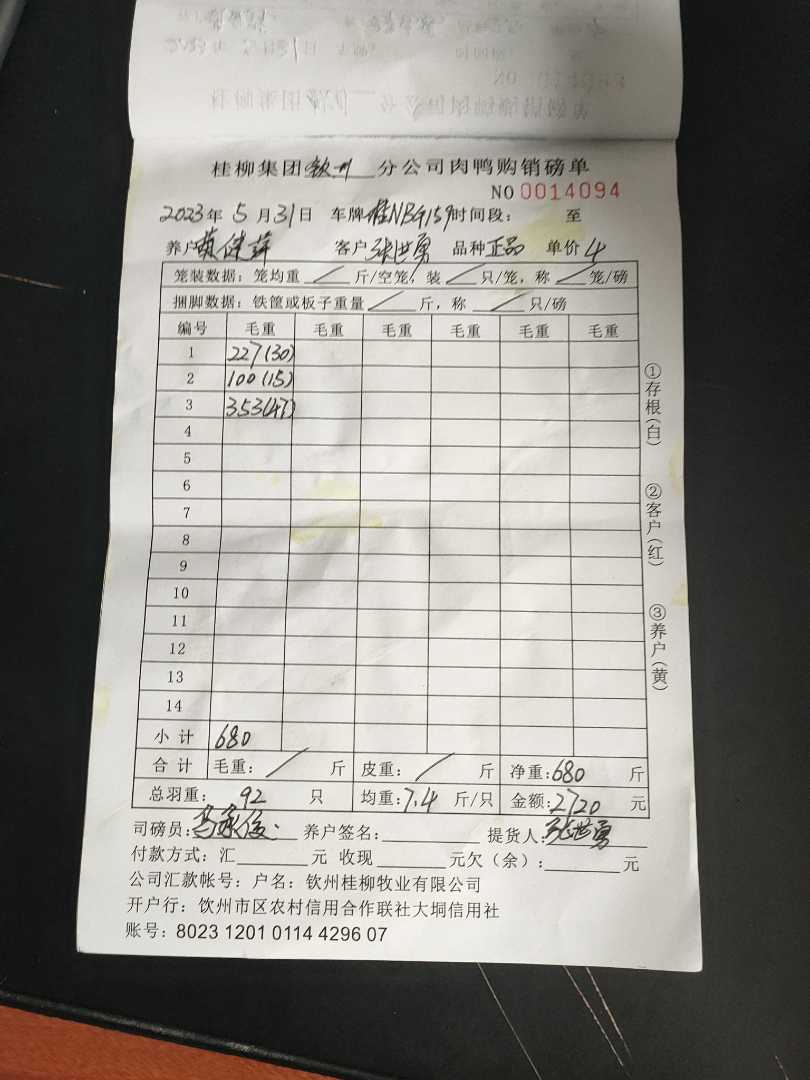 桂柳集团钦州分公司肉鸭购销磅单
NO 0014094
2023年5月31日 车牌桂NBG159时间段： 至
养户 客户张世勇 品种正品 单价4
笼装数据：笼均重／斤/空笼，装／只/笼，称／笼/磅
捆脚数据：铁筐或板子重量／斤，称／只/磅
编号 毛重 毛重 毛重 毛重 毛重 毛重
1 227(30)
2 100(15)
3 353(47)
4
5
6
7
8
9
10
11
12
13
14
小计 680
合计 毛重：／斤 皮重：／斤 净重：680斤
总羽重：92只 均重：7.4斤/只 金额：2720元
司磅员： 养户签名： 提货人：张世勇
付款方式：汇 元 收现 元欠（余）： 元
公司汇款帐号：户名：钦州桂柳牧业有限公司
开户行：饮州市区农村信用合作联社大垌信用社
账号：8023 1201 0114 4296 07
①存根(白)
②客户(红)
③养户(黄)